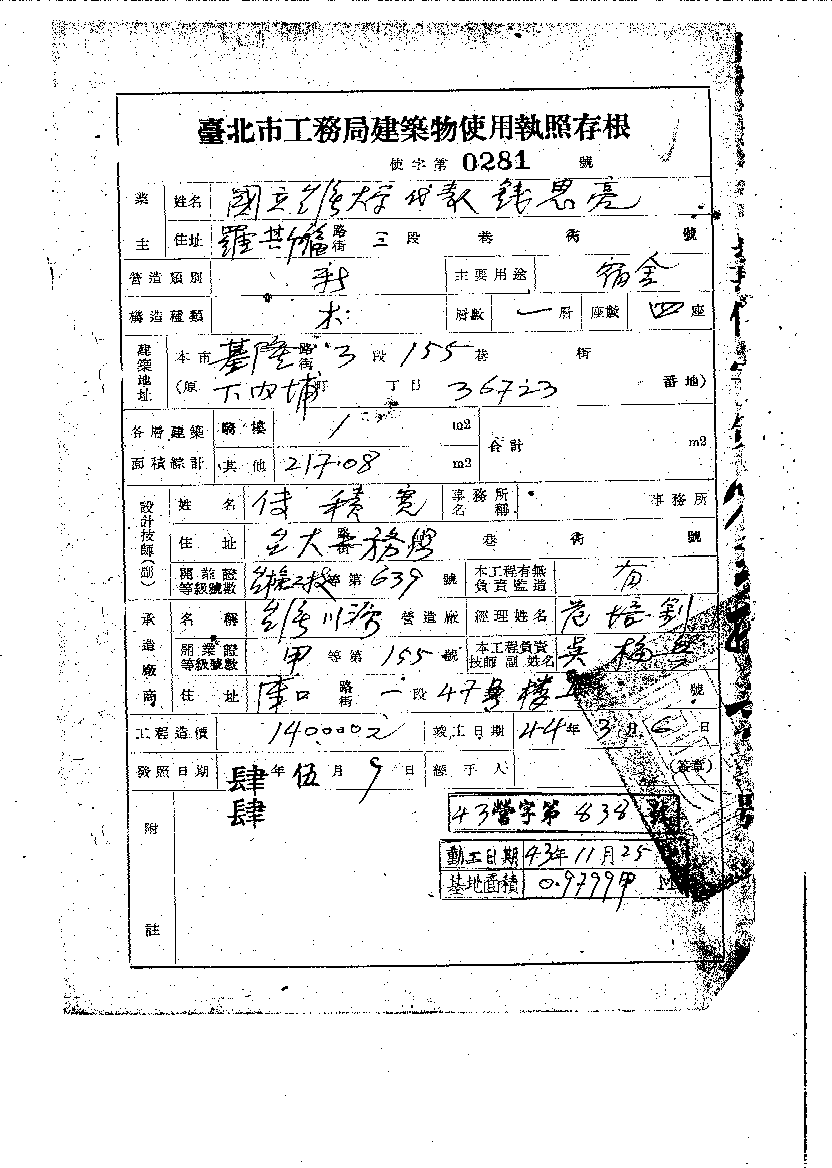 臺北市工務局建築物使用執照存根
使字第 0281 號
業主 姓名 國立台灣大学代表 錢思亮
住址 羅斯福路街 三段 巷 衖 號
營造類別 新 主要用途 宿舍
構造種類 木 層數 一層 座數 四座
建築地址 本市 基隆路街 3段 155巷 街
(原 下內埔町 丁目 36723 番地)
各層建築面積綜計 騎樓 / m2 合計 m2
其他 217.08 m2
設計技師(副) 姓名 積寬 事務所名稱 事務所
住址 台大 路街 巷 衖 號
開業證等級號數 等第 639 號 本工程有無負責監造 有
承造廠商 名稱 台灣 營造廠 經理姓名 范培
開業證等級號數 甲 等第 155 號 本工程負責技師副姓名 吳
住址 路街 一段 47 樓 號
工程造價 140000元 竣工日期 44年3月6日
發照日期 肆肆年伍月9日 經手人 (簽章)
43營字第 838 號
動工日期 43年11月25
基地面積 0.9799甲 M
附註